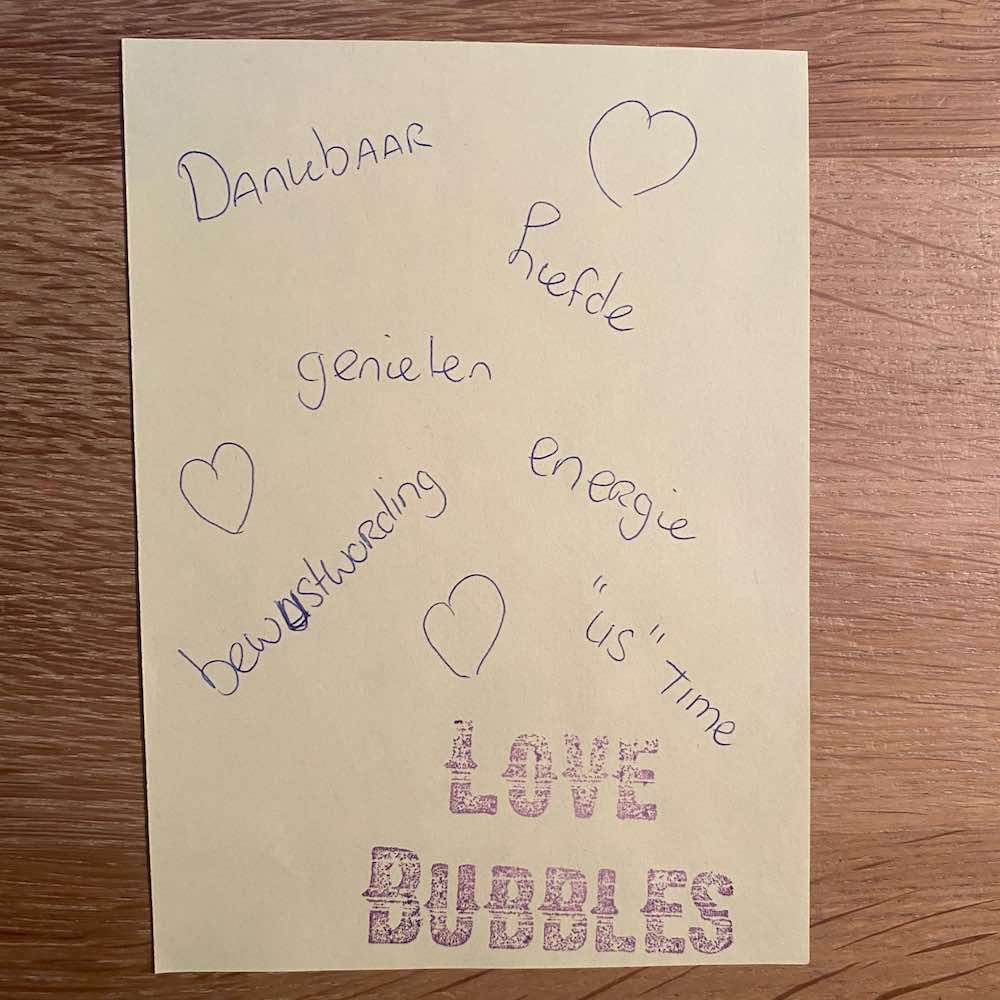 Dankbaar
liefde
genieten
energie
bewustwording
"us" Time
LOVE
BUBBLES